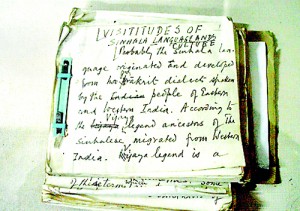 VISITITUDES OF
SINHALA LANGUAGE AND
CULTURE
Probably the Sinhala lan-
guage originated and developed
from the Prakrit dialect spoken
by the Indian people of Eastern
and Western India. According to
the Vijaya legend ancestors of the
Sinhalese migrated from Western
India. Vijaya legend is a
some